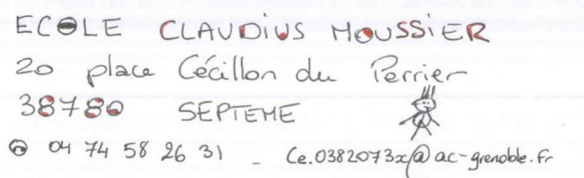 ECOLE CLAUDIUS MOUSSIER
20 place Cécillon du Perrier
38780 SEPTEME
☎ 04 74 58 26 31 - Ce.0382073x@ac-grenoble.fr